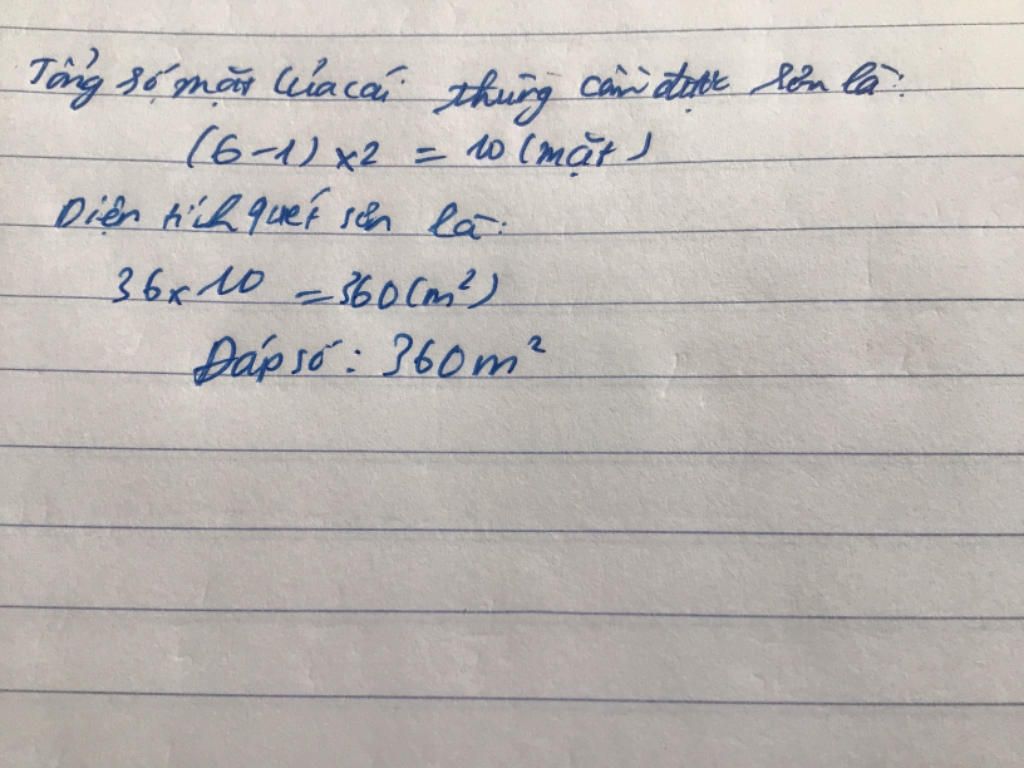 Tổng số mặt của cái thùng cần được sơn là:
(6-1) x2 = 10 (mặt)
Diện tích quét sơn là:
36x 10 = 360 (m²)
Đáp số: 360m²